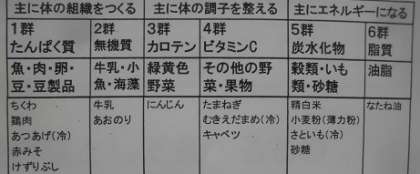 主に体の組織をつくる 主に体の調子を整える 主にエネルギーになる
1群 2群 3群 4群 5群 6群
たんぱく質 無機質 カロテン ビタミンC 炭水化物 脂質
魚・肉・卵・ 牛乳・小 緑黄色 その他の野 穀類・いも 油脂
豆・豆製品 魚・海藻 野菜 菜・果物 類・砂糖
ちくわ 牛乳 にんじん たまねぎ 精白米 なたね油
鶏肉 あおのり むきえだまめ(冷) 小麦粉(薄力粉)
あつあげ(冷) キャベツ さといも(冷)
赤みそ 砂糖
けずりぶし